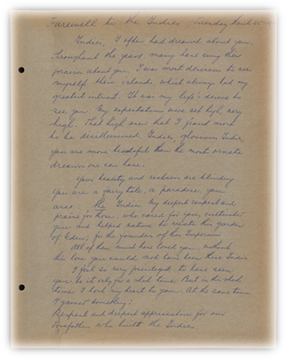 Farewell to the Indies. Tuesday March
Indies, I often had dreamed about you.
Throughout the years many have sung their
praises about you. I was most desirous to see
myself these islands, which always had my
greatest interest. It was my life's desire to
see you. My expectations were set high, very
high. That high even that I feared more
to be disillusioned. Indies, glorious Indies,
you are more beautiful than the most ornate
dreams one can have.
Your beauty and are blinding
you are a fairy tale, a paradise you
are. My deepest respect and
praise for those, who cared for you, cultivated
you and helped nature to create this garden
of Eden, for the grandeur of her Emperium.
All of them must have loved you, without
the love you would not have been these Indies
I feel so very privileged to have seen
you, be it only for a short time. But in the short
time I lost my heart to you. At the same time
I gained something:
Respect and deepest appreciation for our
forefathers who built the Indies.